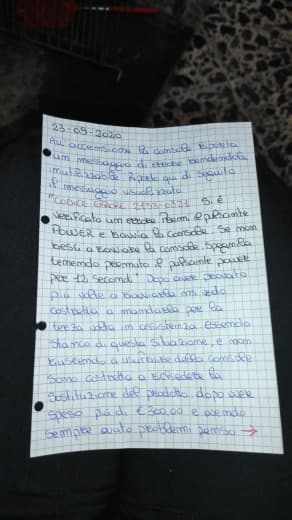 23-09-2020
All accensione la console riporta
un messaggio di errore rendendola
inutilizzabile Riporto qui di seguito
il messaggio visualizzato
"CODICE ERRORE 2153-0321 Si è
verificato un errore Premi il pulsante
POWER e riavvia la console. Se non
riesci a riavviare la console. Spegnila
tenendo premuto il pulsante power
per 12 secondi" Dopo avere provato
più volte a riavviarla mi vedo
costretta a mandarla per la
terza volta in assistenza. Essendo
stanca di questa situazione, e non
riuscendo a usufruire della console
sono costretta a richiedere la
sostituzione del prodotto. dopo avere
speso più di €300,00 e avendo
sempre avuto problemi penso →